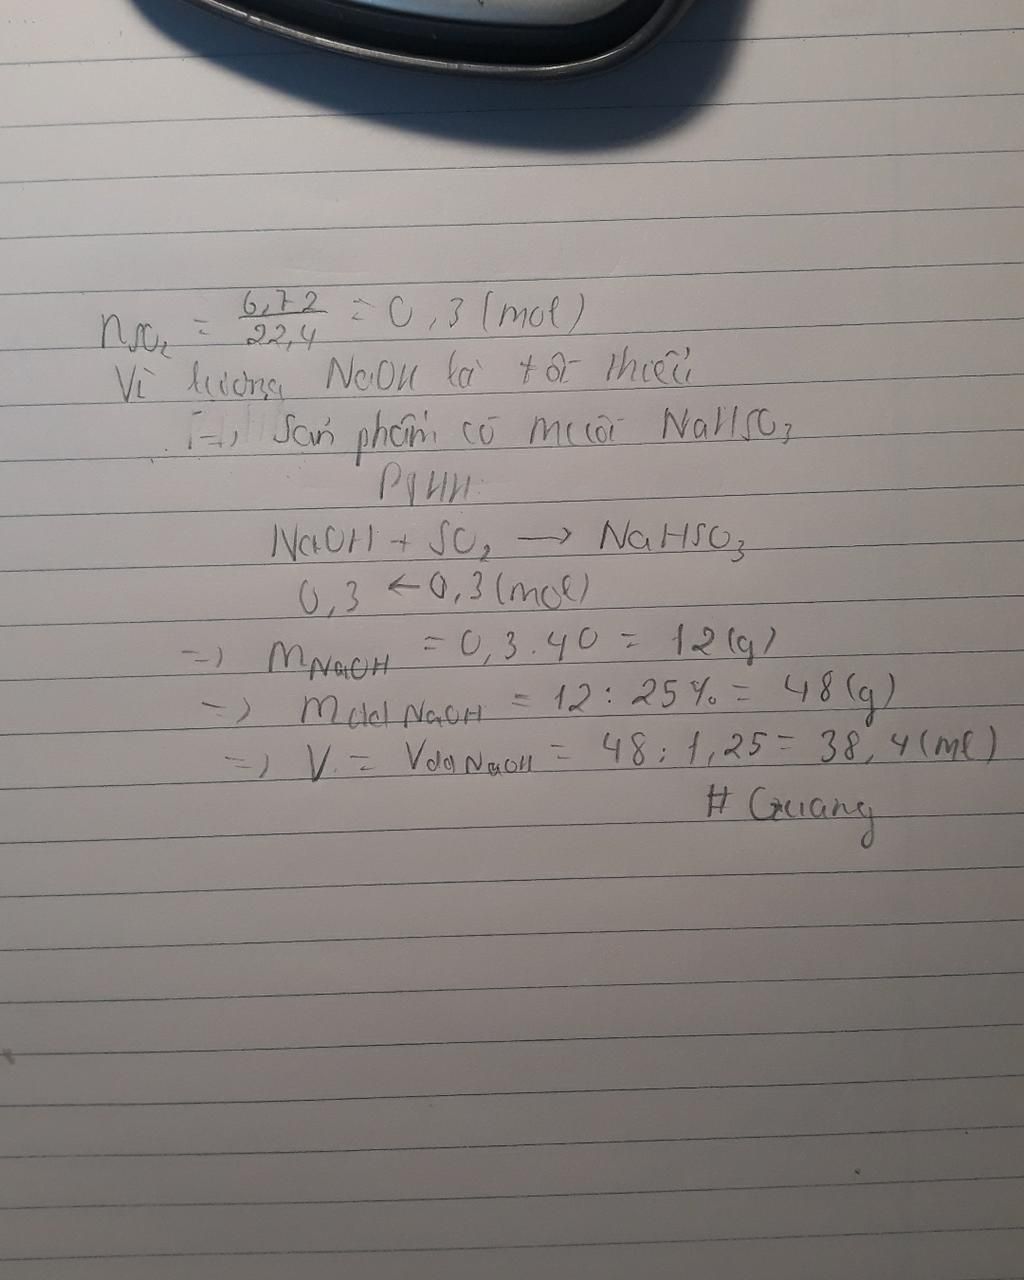 nSO₂ = 6,72/22,4 = 0,3 (mol)
Vì lượng NaOH là tối thiểu
=> Sản phẩm có muối NaHSO₃
PTHH:
NaOH + SO₂ → NaHSO₃
0,3 ← 0,3 (mol)
=> mNaOH = 0,3.40 = 12 (g)
=> mdd NaOH = 12 : 25% = 48 (g)
=> V = Vdd NaOH = 48 : 1,25 = 38,4 (ml)
# Quang